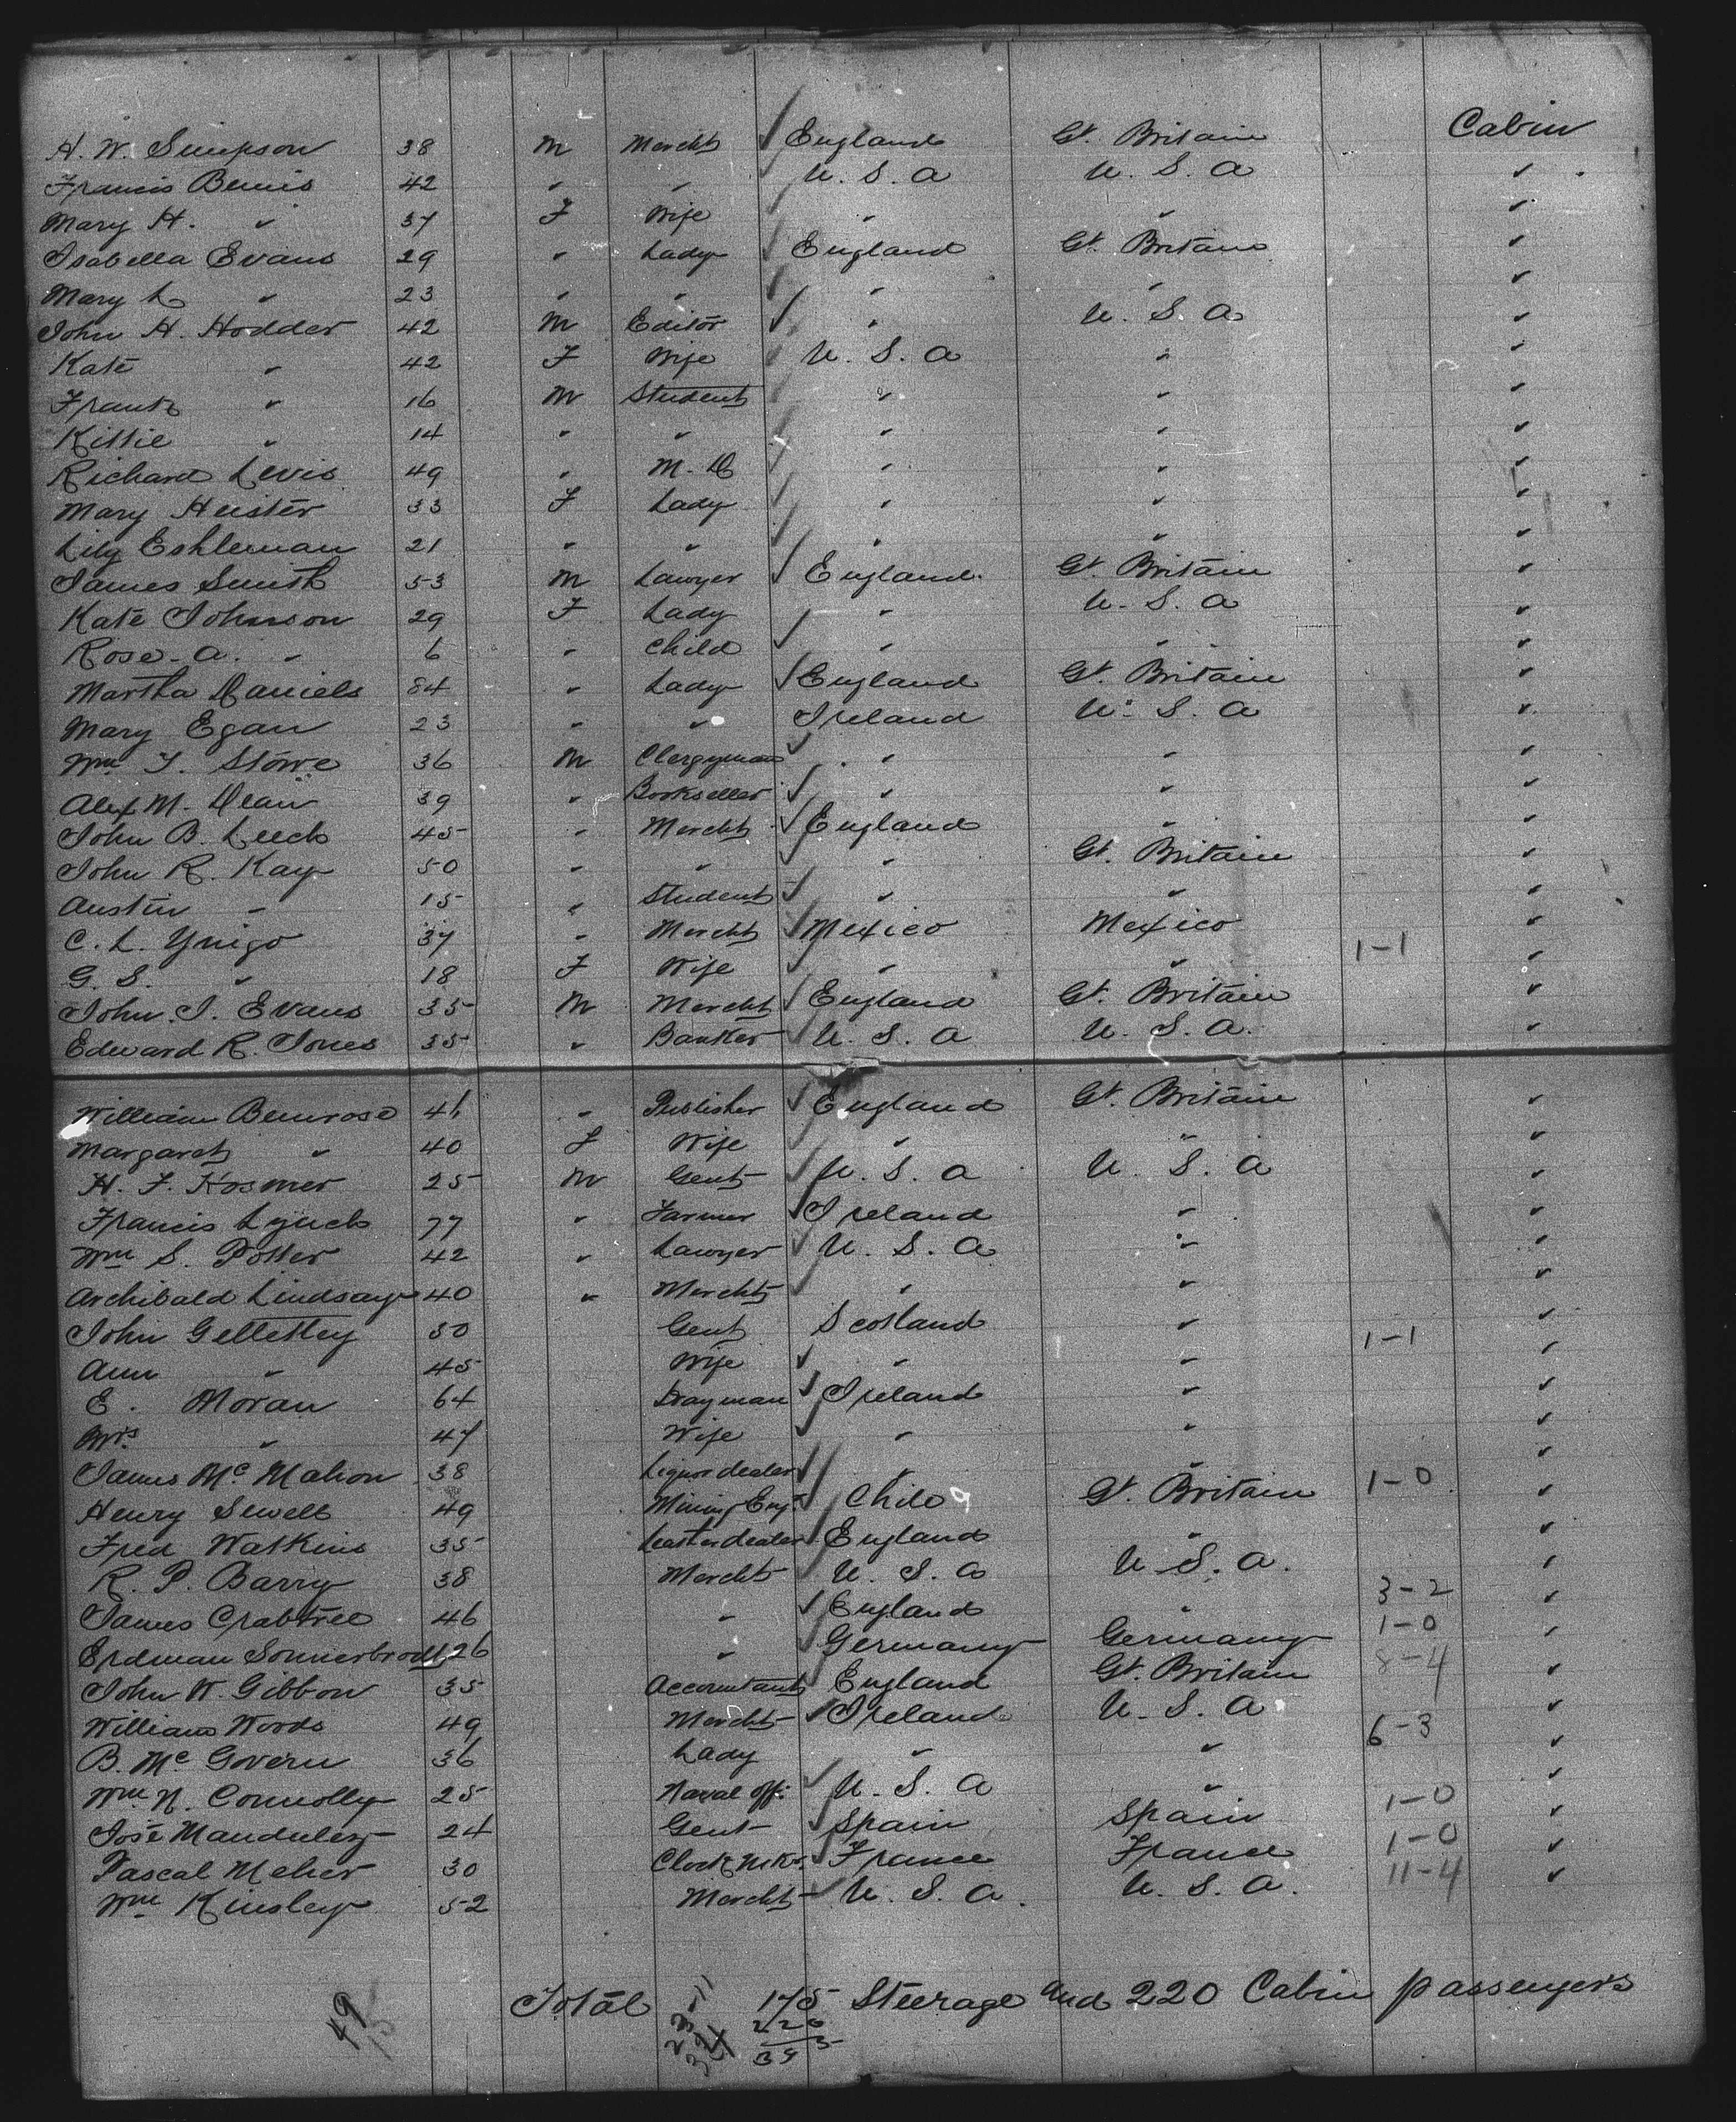 Cabin
H. W. Simpson 38 M Mercht England Gt. Britain
Francis Bemis 42 " " U. S. A U. S. A "
Mary H. " 37 F Wife " " "
Isabella Evans 29 " Lady England Gt. Britain "
Mary L " 23 " " " " "
John H. Hodder 42 M Editor " U. S. A "
Kate " 42 F Wife U. S. A " "
Frank " 16 M Student " " "
Kittie " 14 " " " " "
Richard Levis 49 " M. D " " "
Mary Heister 33 F Lady " " "
Lily Eshleman 21 " " " " "
James Smith 53 M Lawyer England Gt. Britain "
Kate Johnson 29 F Lady " U. S. A "
Rose A. " 6 " Child " " "
Martha Daniels 84 " Lady England Gt. Britain "
Mary Egan 23 " " Ireland U. S. A "
Wm T. Stowe 36 M Clergyman " " "
Alex M. Dean 39 " Bookseller " " "
John B. Leech 45 " Mercht England " "
John R. Kay 50 " " " Gt. Britain "
Austin " 15 " Student " " "
C. L. Ynigo 37 " Mercht Mexico Mexico "
G. S. " 18 F Wife " " 1-1 "
John J. Evans 35 M Mercht England Gt. Britain "
Edward R. Jones 35 " Banker U. S. A U. S. A. "
William Bemrose 46 " Publisher England Gt. Britain "
Margaret " 40 F Wife " " "
H. F. Hosmer 25 M Gent U. S. A U. S. A "
Francis Lynch 77 " Farmer Ireland " "
Wm S. Potter 42 " Lawyer U. S. A " "
Archibald Lindsay 40 " Mercht " " "
John Gelletley 50 Gent Scotland " 1-1 "
Ann " 45 Wife " " "
E. Moran 64 Drayman Ireland " "
Mrs " 47 Wife " " "
James McMahon 38 Liquor dealer " " 1-0 "
Henry Sewell 49 Mining Engr Chile Gt. Britain "
Fred Watkins 35 Leather dealer England " "
R. P. Barry 38 Mercht U. S. A U. S. A. 3-2 "
James Crabtree 46 " England " 1-0 "
Erdman Sonnerbrodt 26 " Germany Germany 8-4 "
John W. Gibbon 35 Accountant England Gt. Britain "
William Woods 49 Mercht Ireland U. S. A 6-3 "
B. McGovern 36 Lady " " "
Wm N. Connolly 25 Naval off. U. S. A " 1-0 "
José Mandulez 24 Gent Spain Spain 1-0 "
Pascal Meher 30 Clock Mkr. France France 11-4 "
Wm Kinsley 52 Mercht U. S. A. U. S. A. "
Total 175 Steerage and 220 Cabin passengers
220
395
49
23-11
34